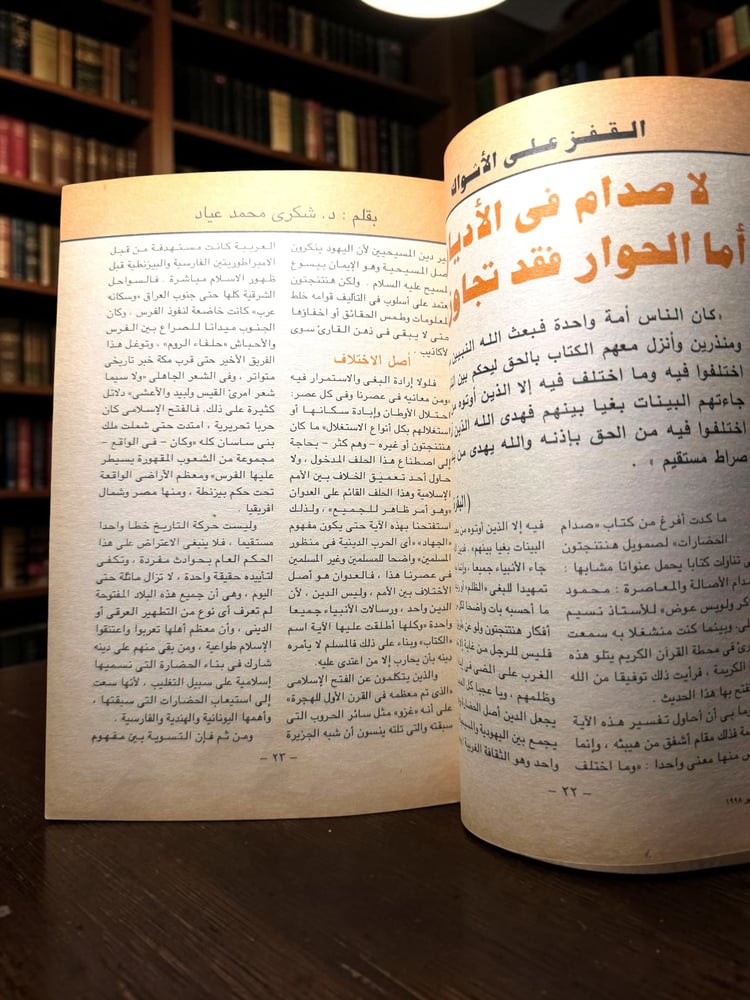 القفز على الأشواك
لا صدام فى
أما الحوار فقد
«كان الناس أمة واحدة فبعث الله النبيين
ومنذرين وأنزل معهم الكتاب بالحق ليحكم بين
اختلفوا فيه وما اختلف فيه إلا الذين أوتوه
جاءتهم البينات بغيا بينهم فهدى الله الذين
اختلفوا فيه من الحق بإذنه والله يهدى من
صراط مستقيم» .
ما كدت أفرغ من كتاب «صدام
الحضارات» لصمويل هنتنجتون
تناولت كتابا يحمل عنوانا مشابها :
الأصالة والمعاصرة : محمود
ولويس عوض» للأستاذ نسيم
وبينما كنت منشغلا به سمعت
فى محطة القرآن الكريم يتلو هذه
الكريمة ، فرأيت ذلك توفيقا من الله
بها هذا الحديث .
بى أن أحاول تفسير هذه الآية
فذلك مقام أشفق من هيبته ، وإنما
منها معنى واحدا : «وما اختلف
فيه إلا الذين أوتوه من
البينات بغيا بينهم»
جاء الأنبياء جميعا
تمهيدا للبغى
ما أحسبه بات واضحا
أفكار هنتنجتون ولو
فليس للرجل من
الغرب على المضى فى
وظلمهم ، ويا عجبا كل
يجعل الدين أصل
يجمع بين اليهودية
واحد وهو الثقافة
– ٢٢ –
١٩٩٨
بقلم : د. شكرى محمد عياد
دين المسيحيين لأن اليهود ينكرون
المسيحية وهو الإيمان بيسوع
المسيح عليه السلام . ولكن هنتنجتون
يعتمد على أسلوب فى التأليف قوامه خلط
المعلومات وطمس الحقائق أو اخفاؤها
حتى لا يبقى فى ذهن القارئ سوى
الأكاذيب .
أصل الاختلاف
فلولا إرادة البغى والاستمرار فيه
«ومن معانيه فى عصرنا وفى كل عصر:
احتلال الأوطان وإبادة سكانها أو
استغلالهم بكل أنواع الاستغلال» ما كان
هنتنجتون أو غيره – وهم كثر – بحاجة
إلى اصطناع هذا الحلف المدخول ، ولا
حاول أحد تعميق الخلاف بين الأمم
الإسلامية وهذا الحلف القائم على العدوان
«وهو أمر ظاهر للجميع» ، ولذلك
استفتحنا بهذه الآية حتى يكون مفهوم
«الجهاد» «أى الحرب الدينية فى منظور
المسلمين» واضحا للمسلمين وغير المسلمين
فى عصرنا هذا ، فالعدوان هو أصل
الاختلاف بين الأمم ، وليس الدين ، لأن
الدين واحد ، ورسالات الأنبياء جميعا
واحدة «وكلها أطلقت عليها الآية اسم
«الكتاب» وبناء على ذلك فالمسلم لا يأمره
دينه بأن يحارب إلا من اعتدى عليه.
والذين يتكلمون عن الفتح الإسلامى
«الذى تم معظمه فى القرن الأول للهجرة»
على أنه «غزو» مثل سائر الحروب التى
سبقته والتى تلته ينسون أن شبه الجزيرة
العربية كانت مستهدفة من قبل
الامبراطوريتين الفارسية والبيزنطية قبل
ظهور الاسلام مباشرة . فالسواحل
الشرقية كلها حتى جنوب العراق «وسكانه
عرب» كانت خاضعة لنفوذ الفرس . وكان
الجنوب ميدانا للصراع بين الفرس
والأحباش «حلفاء الروم» ، وتوغل هذا
الفريق الأخير حتى قرب مكة خبر تاريخى
متواتر ، وفى الشعر الجاهلى «ولا سيما
شعر امرئ القيس ولبيد والأعشى» دلائل
كثيرة على ذلك. فالفتح الإسلامى كان
حربا تحريرية ، امتدت حتى شملت ملك
بنى ساسان كله «وكان – فى الواقع –
مجموعة من الشعوب المقهورة يسيطر
عليها الفرس» ومعظم الأراضى الواقعة
تحت حكم بيزنطة ، ومنها مصر وشمال
افريقيا .
وليست حركة التاريخ خطا واحدا
مستقيما ، فلا ينبغى الاعتراض على هذا
الحكم العام بحوادث مفردة ، وتكفى
لتأييده حقيقة واحدة ، لا تزال ماثلة حتى
اليوم ، وهى أن جميع هذه البلاد المفتوحة
لم تعرف أى نوع من التطهير العرقى أو
الدينى ، وأن معظم أهلها تعربوا واعتنقوا
الإسلام طواعية ، ومن بقى منهم على دينه
شارك فى بناء الحضارة التى نسميها
إسلامية على سبيل التغليب ، لأنها سعت
إلى استيعاب الحضارات التى سبقتها ،
وأهمها اليونانية والهندية والفارسية .
ومن ثم فإن التسوية بين مفهوم
– ٢٣ –